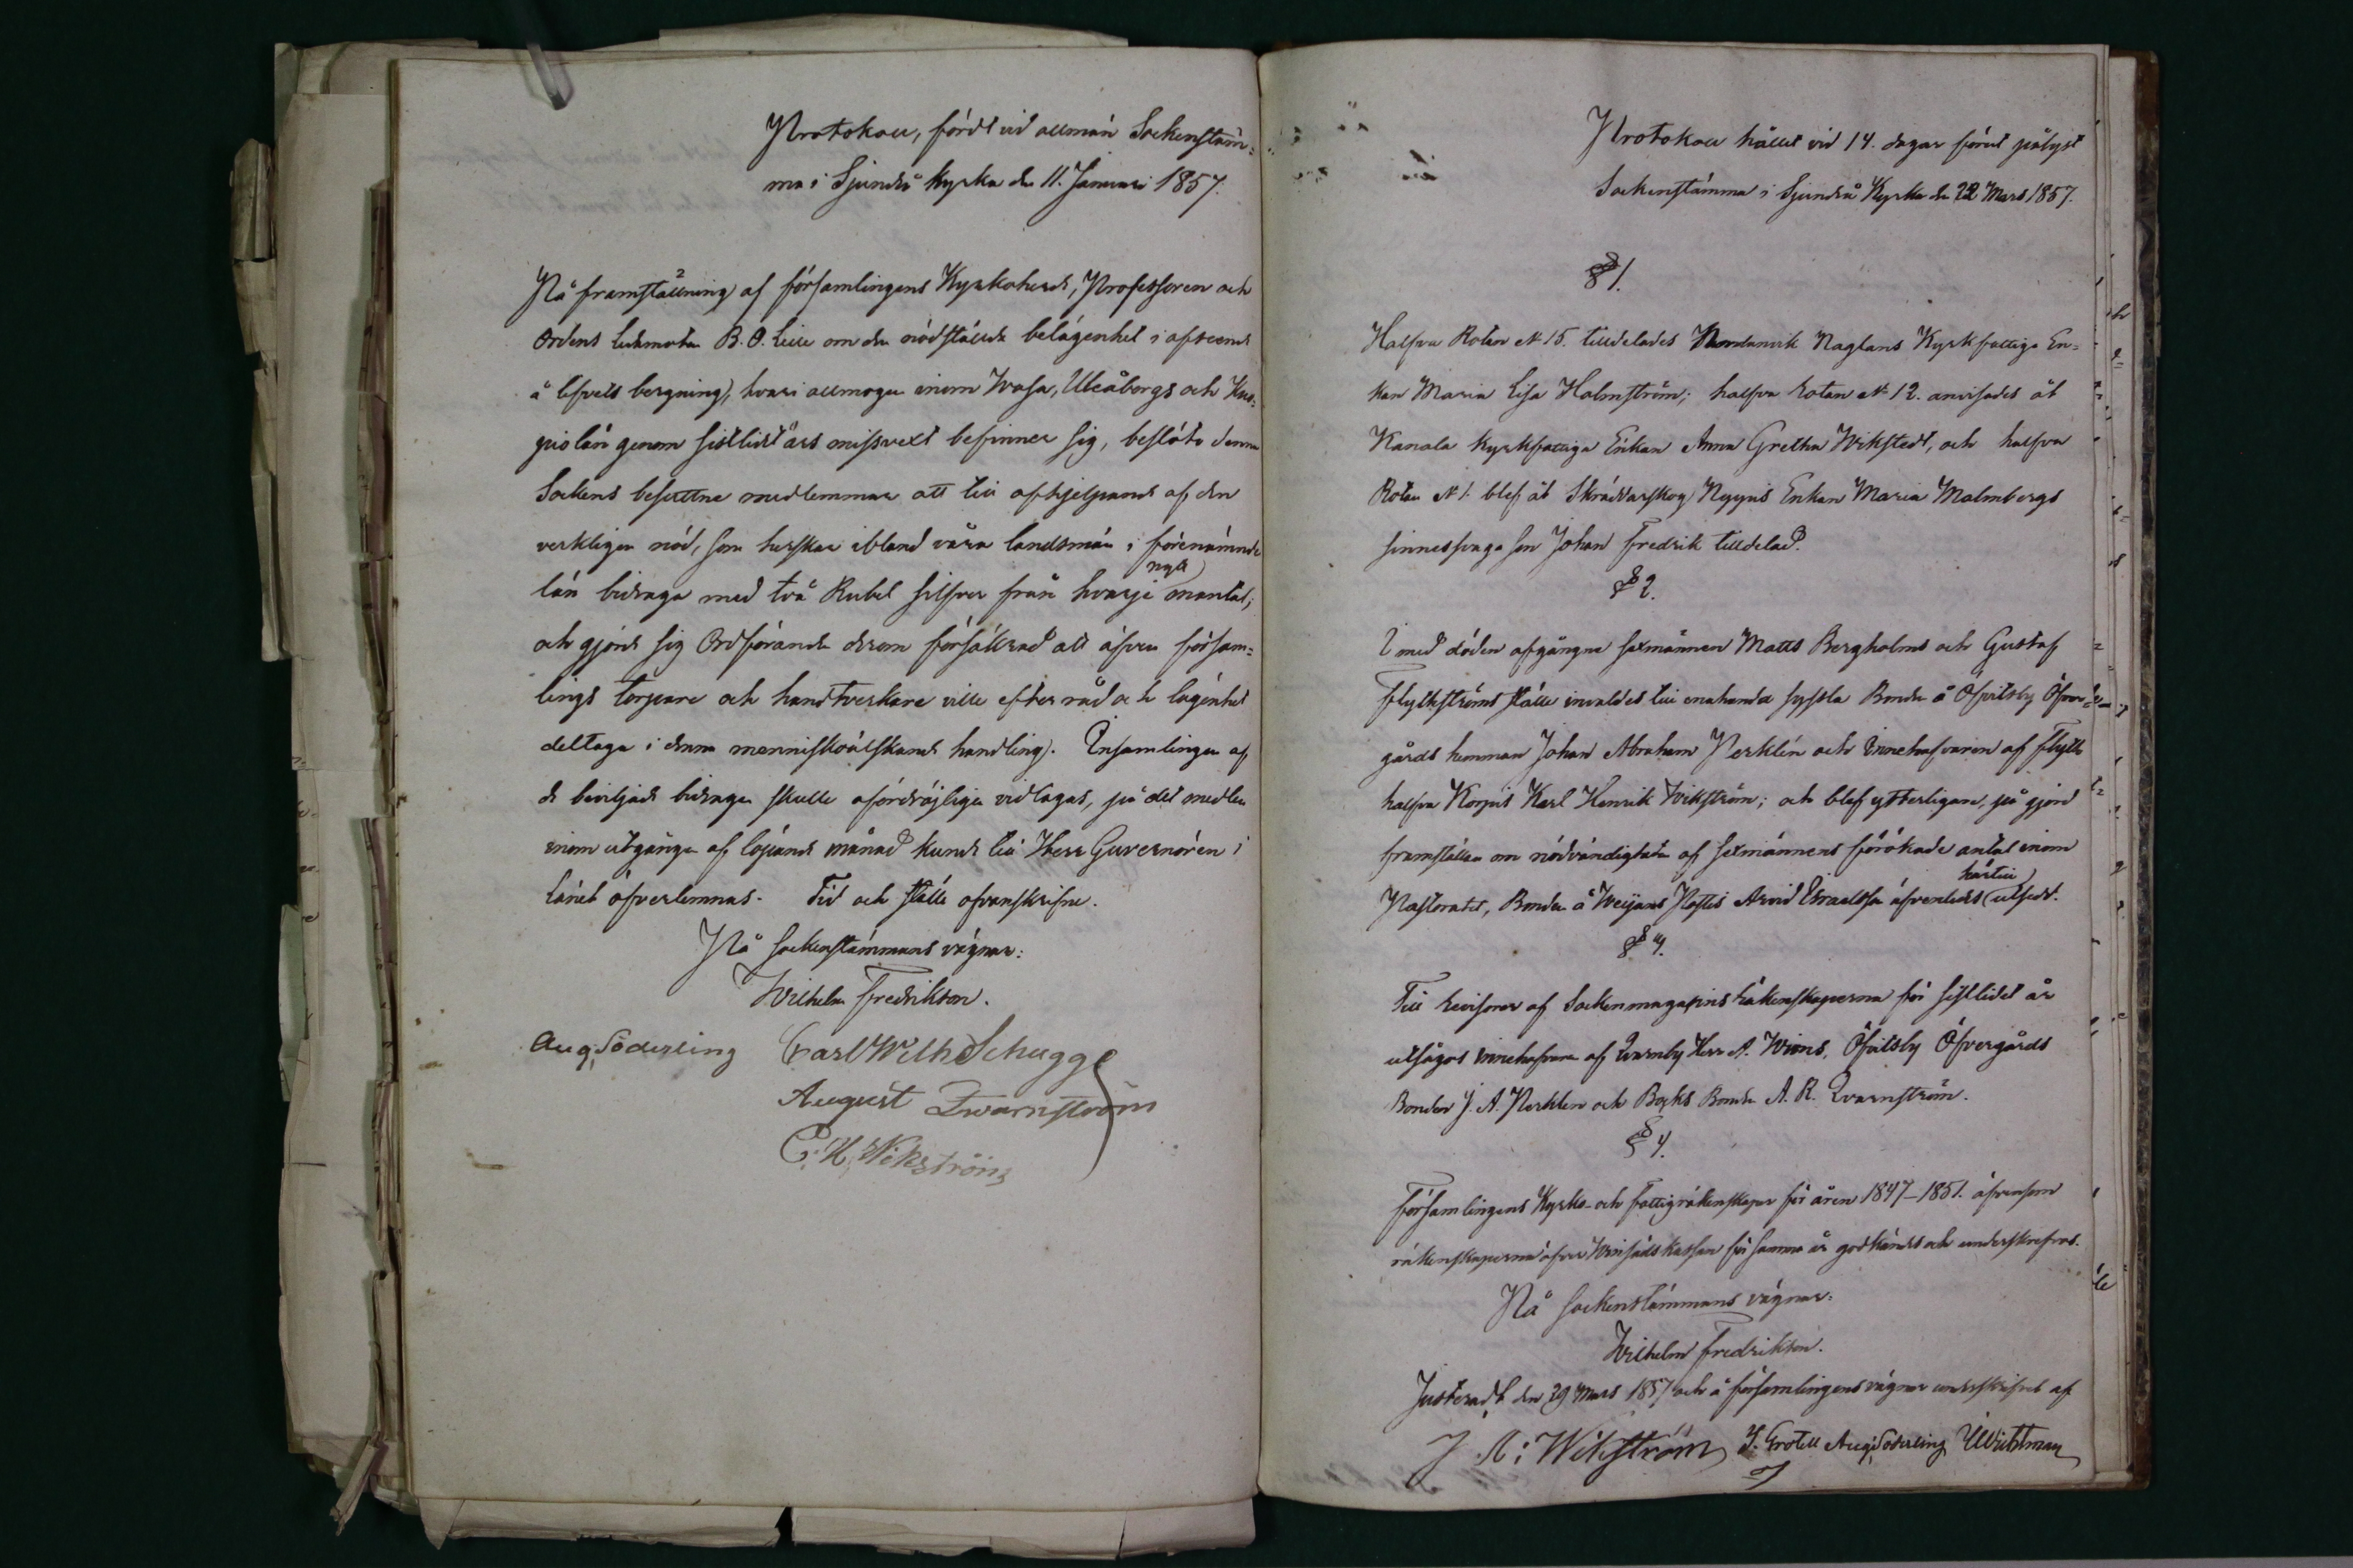 Protokoll, fördt vid allmän Sockenstäm-
ma i Sjundeå kyrka den 11. Januari 1857.
På framställning af församlingens Kyrkoherde, Professoren och
Ordens ledamoten B. O. Lille om den nödstälda belägenhet i afseende
å lifvets bergning, hvari allmogen inom Wasa, Uleåborgs och Kuo-
pio län genom sistlidet års missvext befinner sig, beslöto denna
Sockens besuttne medlemmar att till afhjelpande af den
verkliga nöd, som herskar ibland våra landsmän i förenämnde
län bidraga med två Rubel silfver från hvarje nytt mantal;
och gjorde sig Ordförande derom försäkrad att äfven försam-
lings torpare och handtverkare ville efter råd och lägenhet
deltaga i denna menniskoälskande handling. Insamlingen af
de beviljade bidragen skulle ofördröjligen vidtagas, på det medlen
inom utgången af löpande månad kunde till Herr Guvernören i
länet öfverlemnas. Tid och ställe ofvanskrifne.
På sockenstämmans vägnar:
Wilhelm Fredrikson.
Aug. Söderling Carl Wilh Schugge
August Qwarnström
C. H. Wikström
Protokoll hållet vid 14. dagar förut pålyst
Sockenstämma i Sjundeå Kyrka den 22 Mars 1857.
§ 1.
Halfva Roten N 15. tilldelades Naglans Kyrkfattiga En-
kan Maria Lisa Holmström; halfva Rotan N 12. anvisades åt
Kanala kyrkfattiga Enkan Anna Gretha Wikstedt, och halfva
Roten N 1. blef åt Skräddarskog Nygrens Enkan Maria Malmbergs
sinnessvaga son Johan Fredrik tilldelad.
§ 2.
I med döden afgångne sexmännen Matts Bergholms och Gustaf
Flythströms ställe invaldes till enahanda syssla Bonden å Öfvitsby Öfver-
gårds hemman Johan Abraham Perklén och Innehafvaren af Flyth
halfva Korpis Karl Henrik Wikström; och blef ytterligare, på gjord
framställan om nödvändigheten af sexmännens förökade antal inom
Pastoratet, Bonden å Weijans Hoftis Arvid Israelsson äfvenledes härtill utsedd.
§ 3.
Till Revisorer af Sockenmagasins Räkenskaperna för sistlidet år
utsågos innehafvaren af Qvarnby Herr A. Wrons, Öfvitsby Öfvergårds
Bonden J. A. Perklén och Böcks Bonde A. R. Qvarnström.
§ 4.
Församlingens Kyrko- och fattigräkenskaper för åren 1847-1851. äfvensom
räkenskaperna öfver Utsädskassan för samma år godkändes och underskrefvos.
På sockenstämmans vägnar:
Wilhelm Fredrikson.
Justeradt den 29 Mars 1857 och å församlingens vägnar underskrifvet af
J. A: Wikström J. Grotell Aug. Söderling Widtman